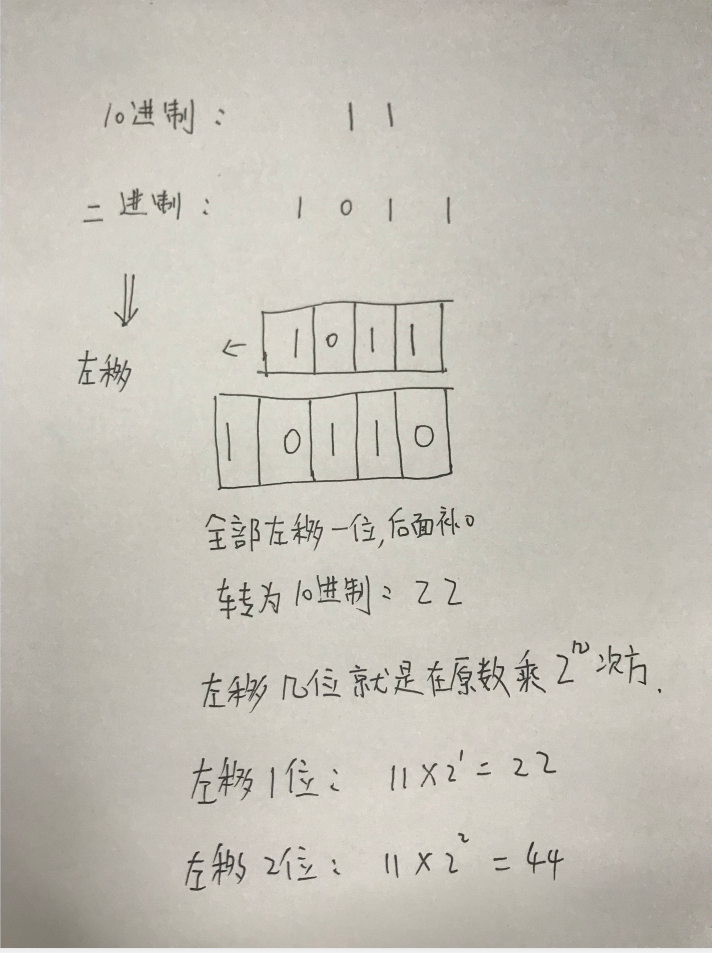 10进制： 11
二进制： 1 0 1 1
左移
← 1 0 1 1
1 0 1 1 0
全部左移一位,后面补0
转为10进制：22
左移几位就是在原数乘2ⁿ次方.
左移1位： 11×2¹=22
左移2位： 11×2²=44